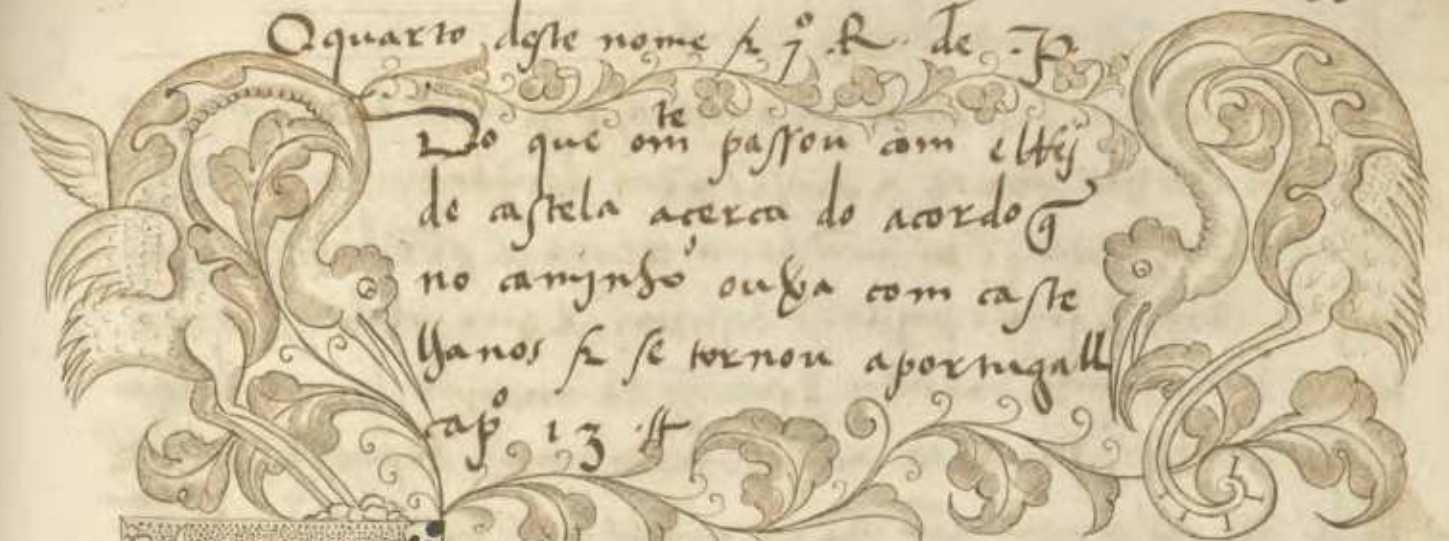 O quarto deste nome & 7º R. de .P.
Do que o inte passou com elRej
de castela acerca do acordo q̃
no caminho ouvera com caste
lhanos & se tornou a portugall
capº 13